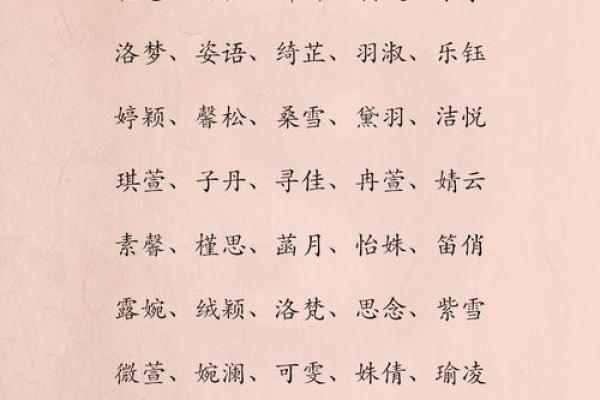 洛梦、姿语、绮芷、羽淑、乐钰
婷颖、馨松、桑雪、黛羽、洁悦
琪萱、子丹、寻佳、冉萱、婧云
素馨、槿思、菡月、怡姝、笛俏
露婉、绒颖、洛梵、思念、紫雪
微萱、婉澜、可雯、姝倩、瑜凌